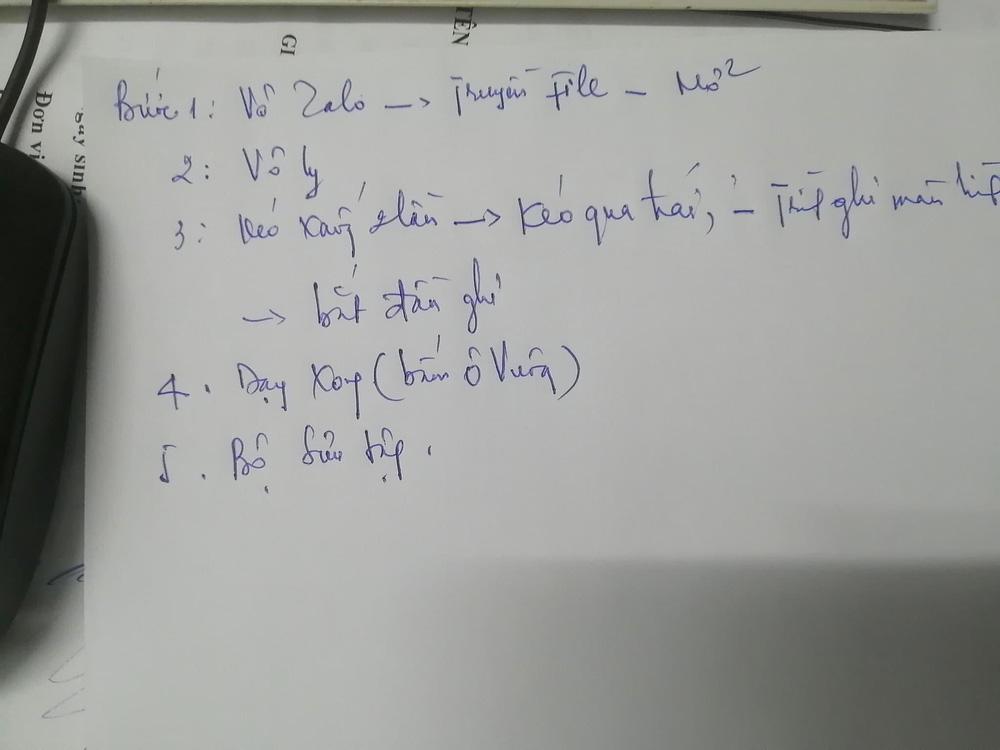 TÊN
GI
Đơn vị
Bước 1: Vô Zalo → Truyền File - Mở
2: Vô ly
3: Kéo xuống 2 lần → Kéo qua trái, - Trình ghi màn hình
→ bắt đầu ghi
4. Dạy xong (bấm ô vuông)
5. Bộ sưu tập.